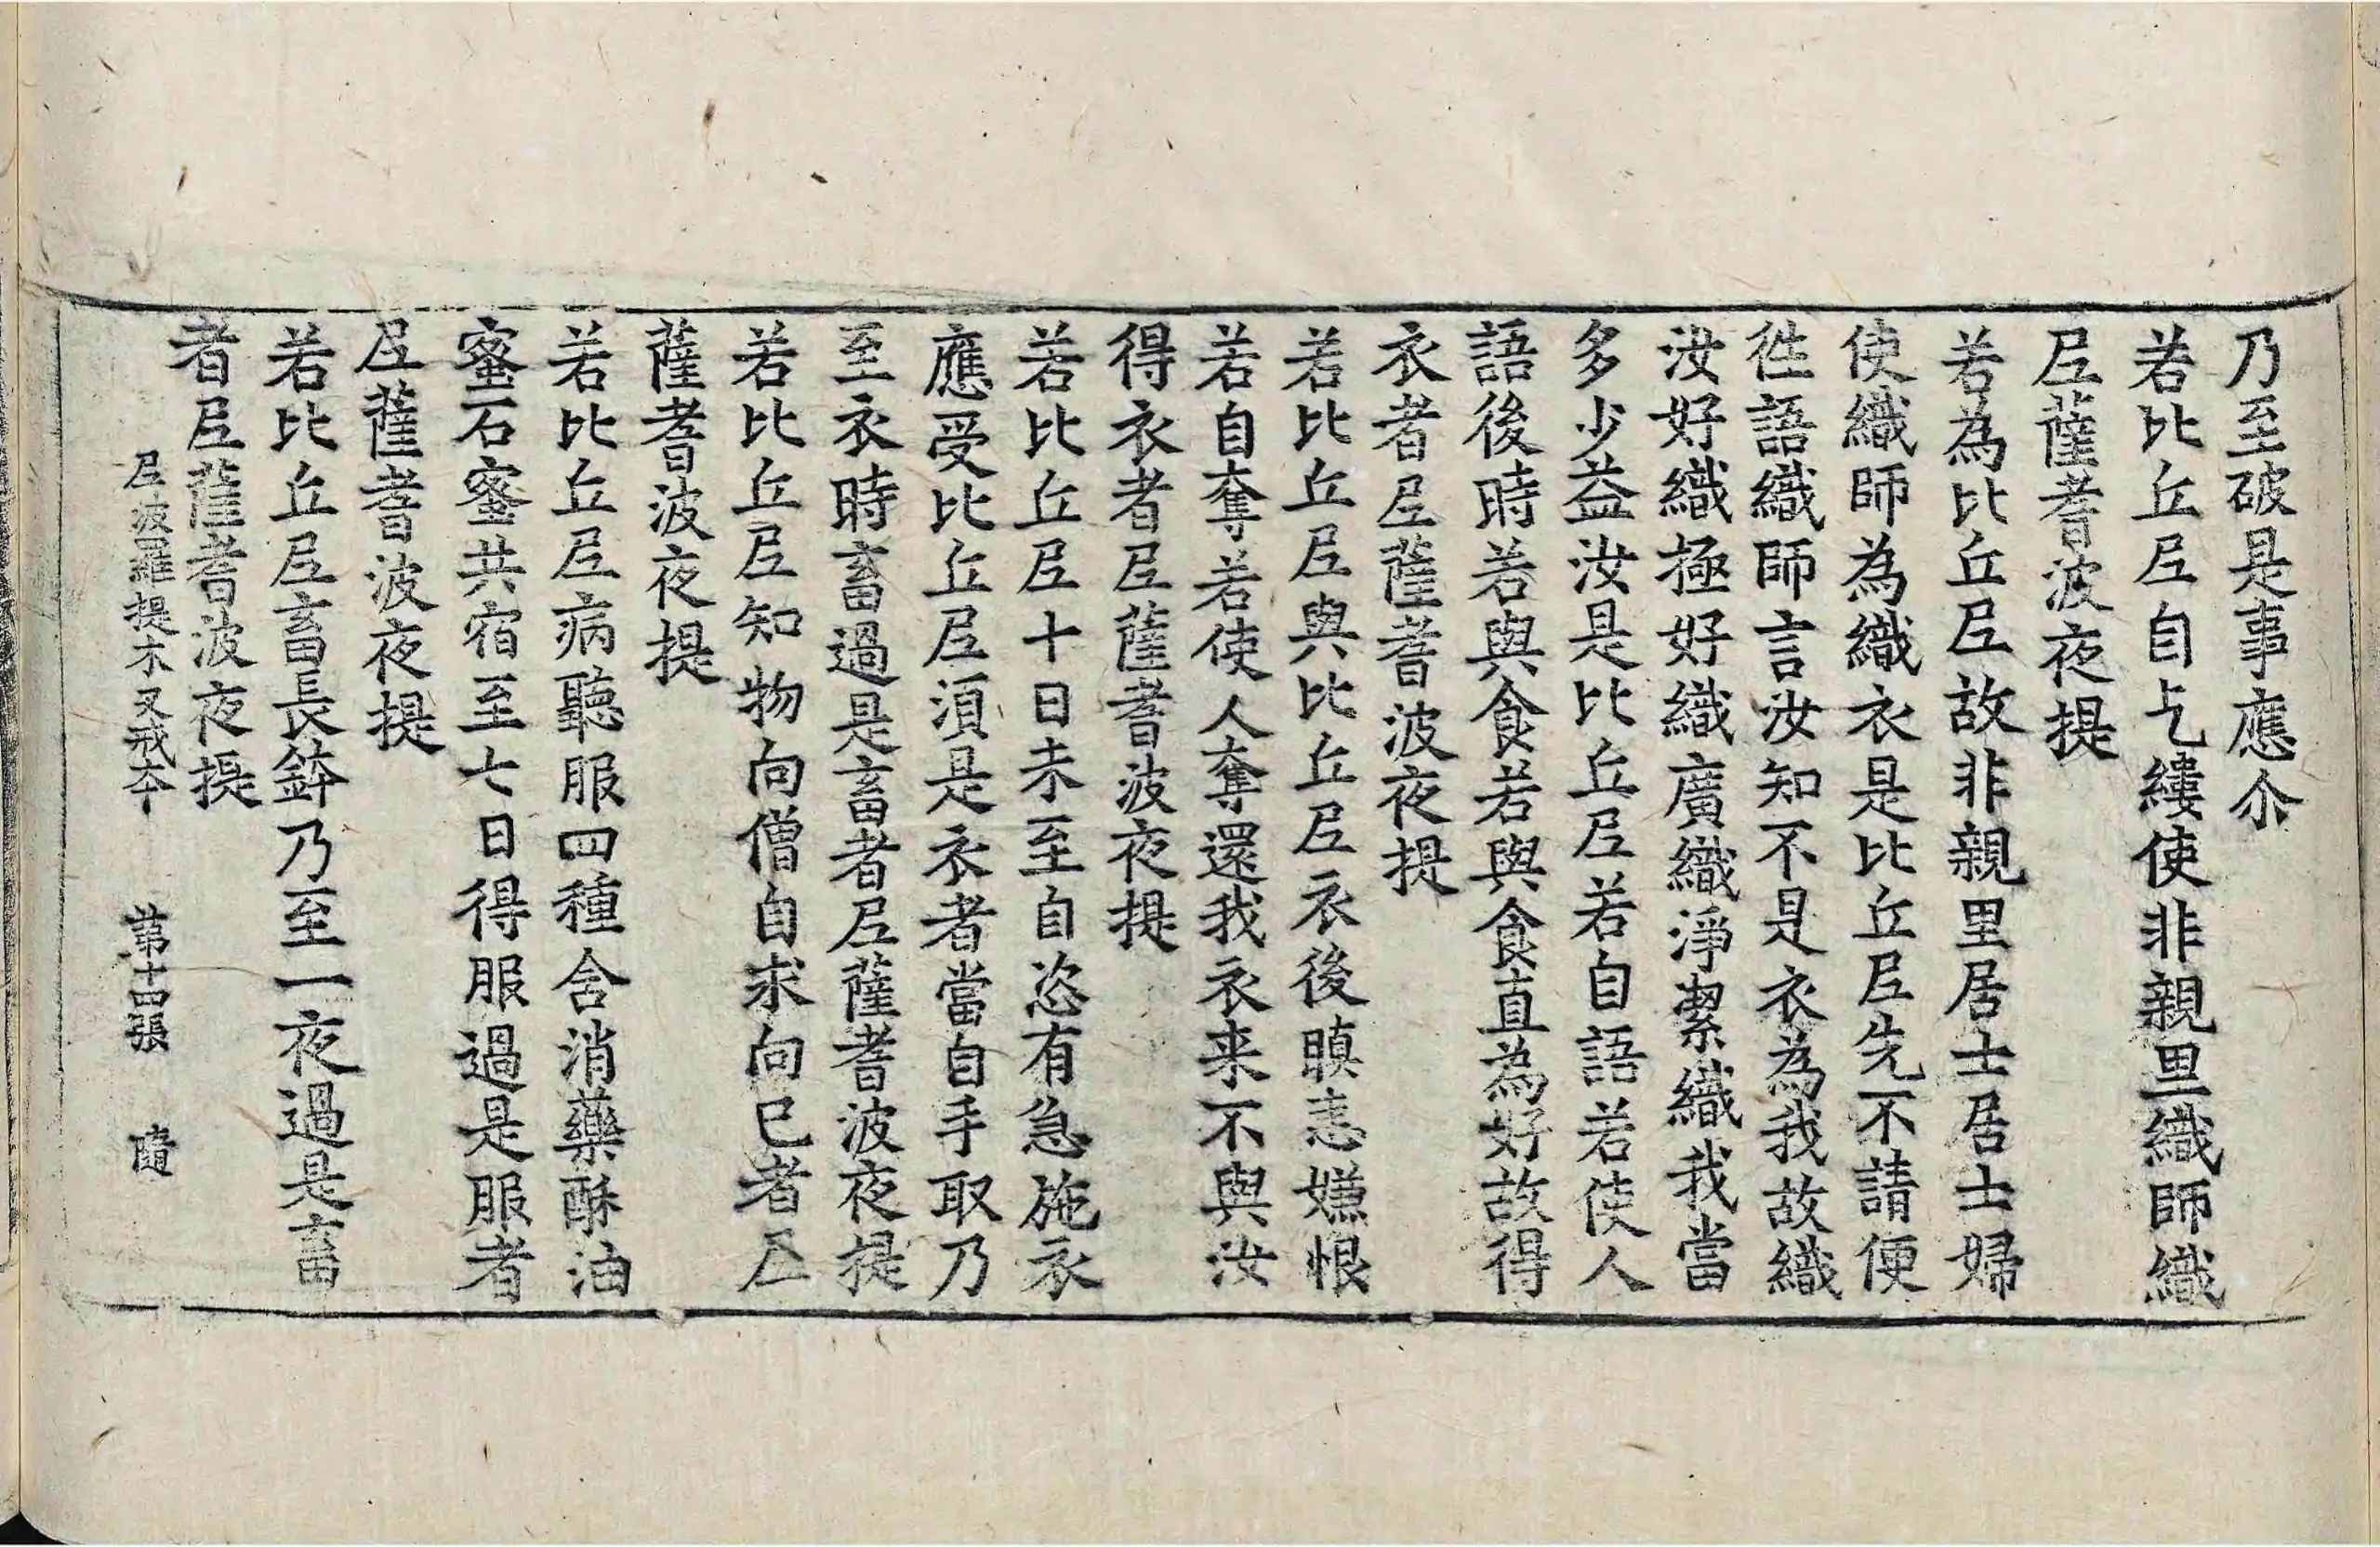 乃至破是事應尒
若比丘尼自乞縷使非親里織師織
尼薩耆波夜提
若為比丘尼故非親里居士居士婦
使織師為織衣是比丘尼先不請便
徃語織師言汝知不是衣為我故織
汝好織極好織廣織淨潔織我當
多少益汝是比丘尼若自語若使人
語後時若與食若與食直為好故得
衣者尼薩耆波夜提
若比丘尼與比丘尼衣後瞋恚嫌恨
若自奪若使人奪還我衣来不與汝
得衣者尼薩耆波夜提
若比丘尼十日未至自恣有急施衣
應受比丘尼須是衣者當自手取乃
至衣時畜過是畜者尼薩耆波夜提
若比丘尼知物向僧自求向已者尼
薩耆波夜提
若比丘尼病聽服四種含消藥酥油
蜜石蜜共宿至七日得服過是服者
尼薩耆波夜提
若比丘尼畜長鉢乃至一夜過是畜
者尼薩耆波夜提
尼波羅提木叉戒夲 第十四張 隨